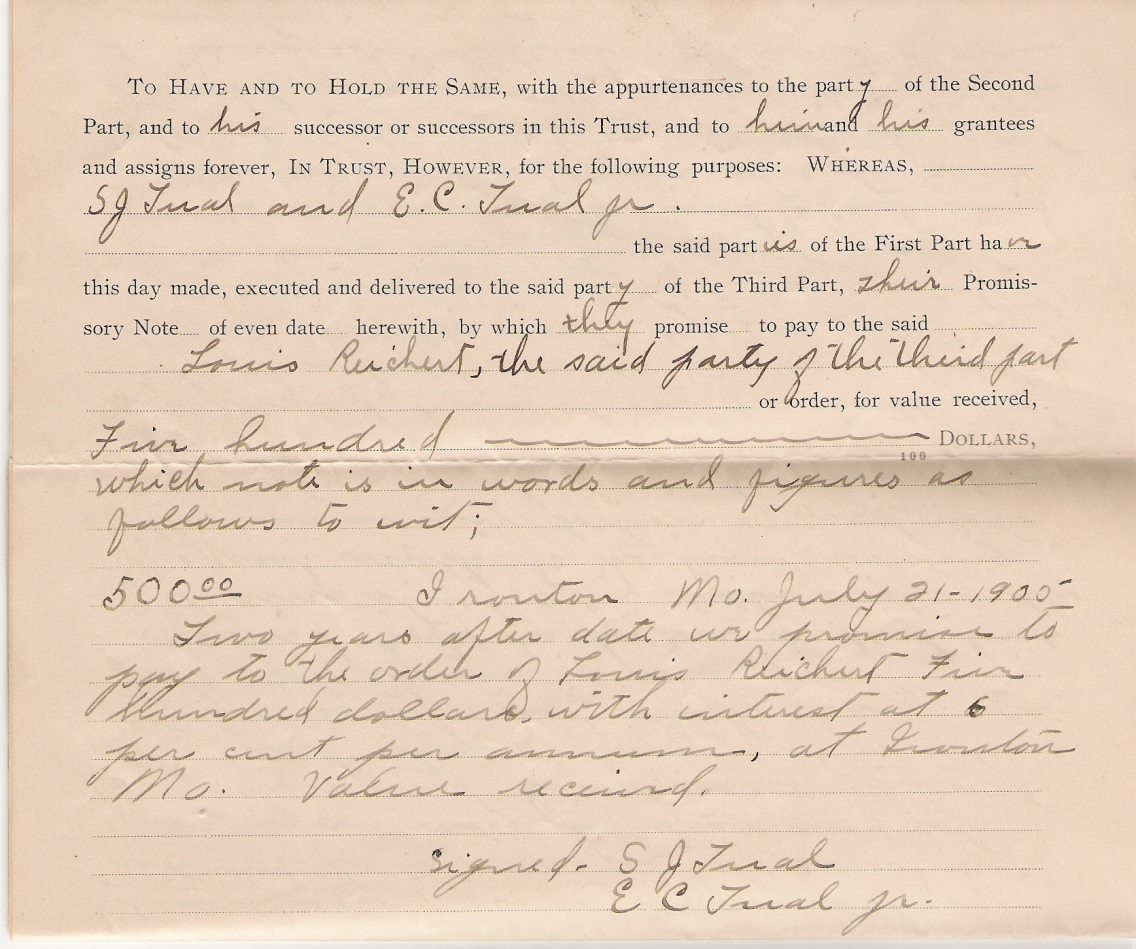 TO HAVE AND TO HOLD THE SAME, with the appurtenances to the party of the Second
Part, and to his successor or successors in this Trust, and to him and his grantees
and assigns forever, IN TRUST, HOWEVER, for the following purposes: WHEREAS,
S J Tual and E. C. Tual jr.
the said parties of the First Part have
this day made, executed and delivered to the said party of the Third Part, their Promis-
sory Note of even date herewith, by which they promise to pay to the said
Louis Reichert, the said party of the third part
or order, for value received,
Five hundred DOLLARS,
100
which note is in words and figures as
follows to wit;
500 00 Ironton Mo. July 21-1905
Two years after date we promise to
pay to the order of Louis Reichert Five
hundred dollars, with interest at 6
per cent per annum, at Ironton
Mo. Value received.
signed - S J Tual
E C Tual jr.